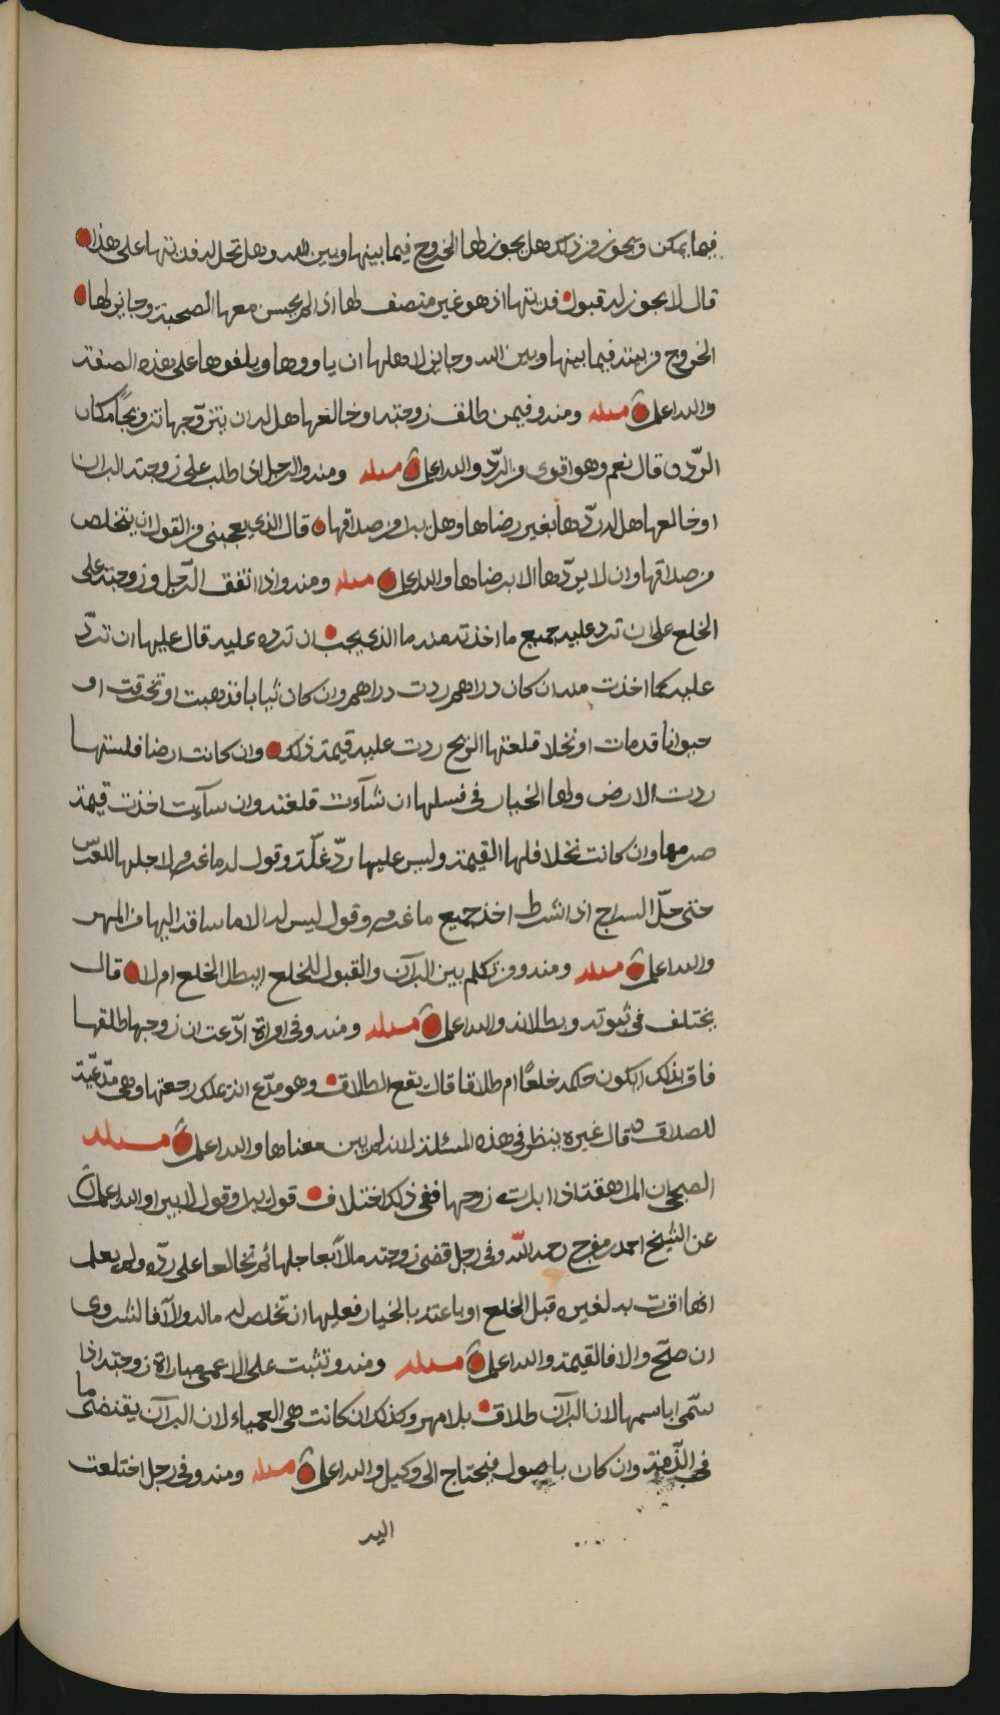 فيما يمكن ويجوز من ذلك هل يجوز لها الخروج فيما بينها وبين الله وهل تحل له فديتها على هذا
قال لا يجوز له قبول فديتها اذ هو غير منصف لها اذا لم يحسن معها الصحبة وجايز لها
الخروج من بيته فيما بينها وبين الله وجايز لاهلها ان ياووها ويلفوها على هذه الصفة
والله اعلم مسئله ومنه وفيمن طلق زوجته او خالعها هل له ان يتزوجها تزويجًا مكان
الردّ قال نعم وهو اقوى من الردّ والله اعلم مسئله ومنه والرجل اذا طلب على زوجته البرآن
او خالعها هل له ردّها بغير رضاها وهل يبرا من صداقها قال الذي يعجبني من القول ان يتخلص
من صداقها وان لا يردّها الا برضاها والله اعلم مسئله ومنه واذا اتفق الرّجل وزوجته على
الخلع على ان تردّ عليه جميع ما اخذته منه ما الذي يجب ان ترده عليه قال عليها ان تردّ
عليه كما اخذت منه ان كان دراهم ردت دراهم وان كان ثيابا فذهبت او تخرقت او
حيوانا قد مات او نخلا قلعتها الريح ردت عليه قيمة ذلك وان كانت ارضا فسلتها
ردت الارض ولها الخيار في فسلها ان شآءت قلعته وان شآءت اخذت قيمة
صرمها وان كانت نخلا فلها القيمة وليس عليها ردّ غلّة وقول له ما غرم لاجلها للعرس
حتى حلّ السراج اذا اشترط اخذ جميع ما غرم وقول ليس له الا ما ساقه اليها من المهر
والله اعلم مسئله ومنه ومن تكلم بين البرآن والقبول للخلع ايبطل الخلع ام لا قال
يختلف في ثبوته وبطلانه والله اعلم مسئله ومنه وفي امراة ادّعت ان زوجها طلقها
فاقر بذلك ايكون حكمه خلعًا ام طلاقا قال يقع الطلاق وهو مدّع انه يملك رجعتها وهي مدّعيّة
للصداق قال غيره ينظر في هذه المسئلة لانه لم يبين معناها والله اعلم مسئله
الصبحي ان المراهقة اذا ابارت زوجها ففي ذلك اختلاف قول يبرا وقول لا يبرا والله اعلم
عن الشيخ احمد بن مفرح رحمه الله وفي رجل قضى زوجته مالًا بعاجلها ثم تخالعا على ردّه ولم يعلم
انها اقرت به لغيره قبل الخلع او باعته بالخيار فعليها ان تخلص له ماله والآ فالشروى
ان صحّ والا فالقيمة والله اعلم مسئله ومنه وتثبت على الاعمى مباراة زوجته اذا
سمّى باسمها لان البرآن طلاق بلا مهر وكذلك ان كانت هي العمياء لان البرآن يقتضي ما
في الذّمة وان كان باصول فيحتاج الى وكيل والله اعلم مسئله ومنه وفي رجل اختلعت
اليه